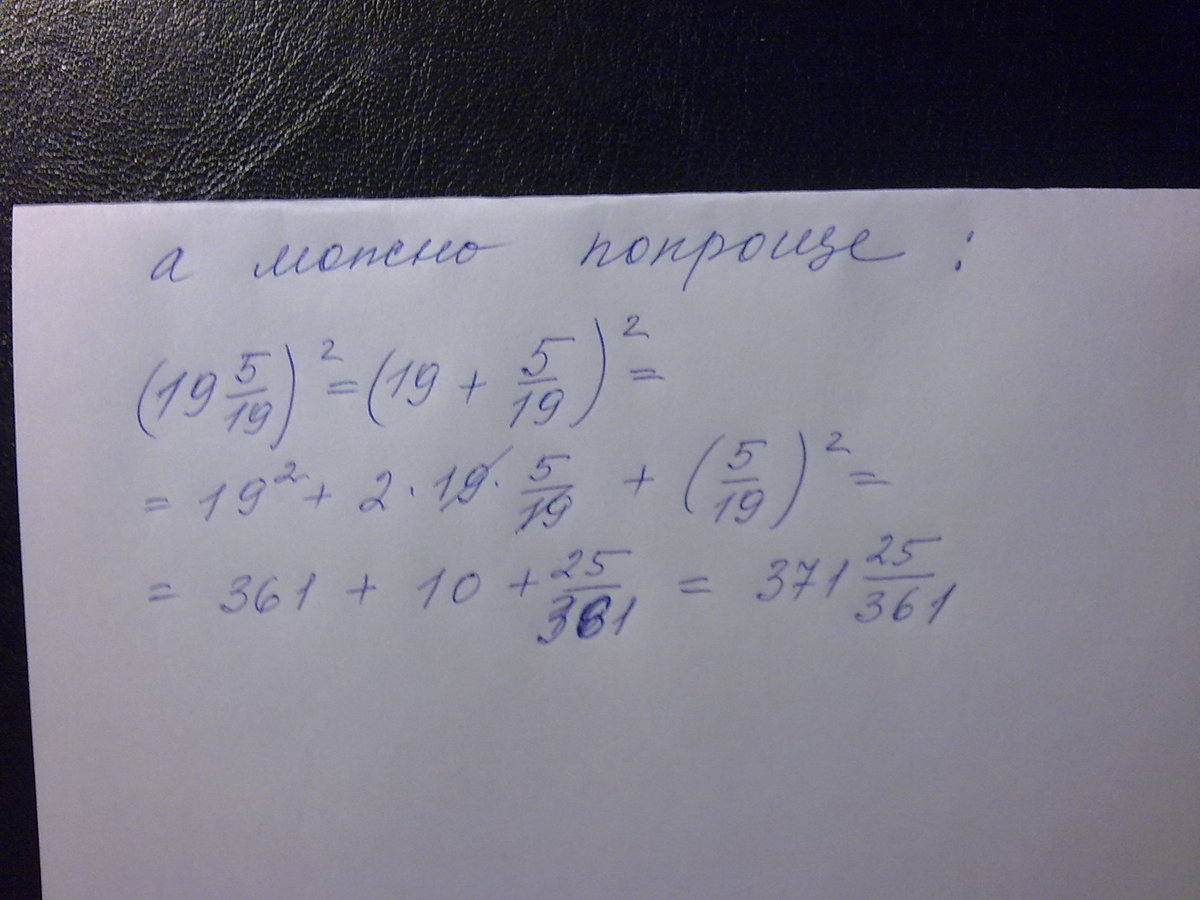 а можно попроще :
(19 5/19)² = (19 + 5/19)² =
= 19² + 2 · 19 · 5/19 + (5/19)² =
= 361 + 10 + 25/361 = 371 25/361